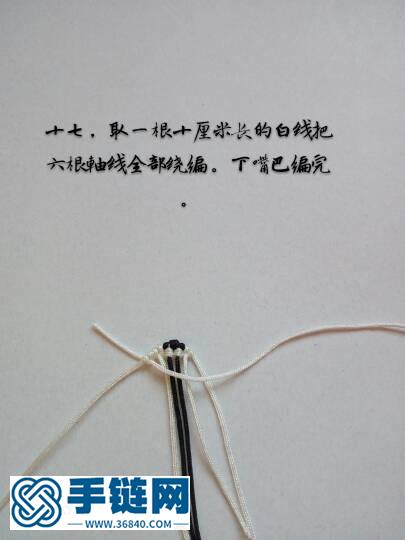 十七，取一根十厘米长的白线把
六根轴线全部绕编。下嘴巴编完
。
手链网
WWW.36840.COM